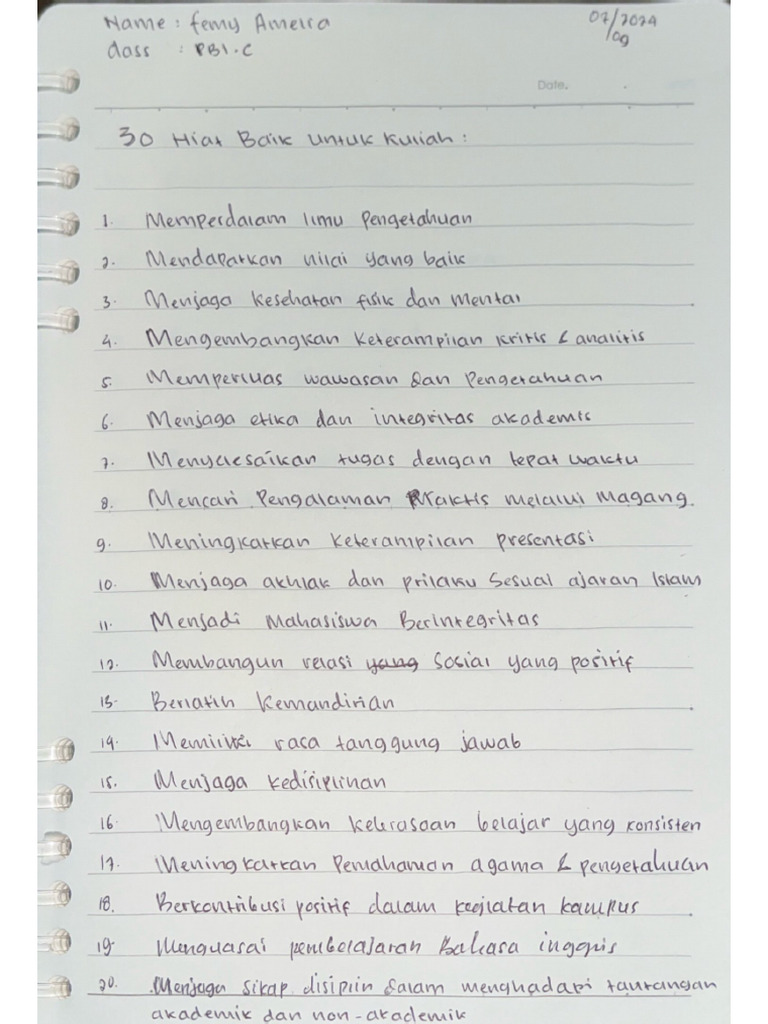 Name : Femy Ameira
07/2024
/09
class : PBI.C
Date.
30 Niat Baik Untuk Kuliah :
1. Memperdalam Ilmu Pengetahuan
2. Mendapatkan nilai yang baik
3. Menjaga Kesehatan fisik dan mental
4. Mengembangkan Keterampilan kritis & analitis
5. Memperluas wawasan dan Pengetahuan
6. Menjaga etika dan integritas akademis
7. Menyelesaikan tugas dengan tepat waktu
8. Mencari Pengalaman Praktis melalui Magang.
9. Meningkatkan Keterampilan presentasi
10. Menjaga akhlak dan prilaku Sesuai ajaran Islam
11. Menjadi Mahasiswa Berintegritas
12. Membangun relasi yang Sosial yang positif
13. Berlatih Kemandirian
14. Memiliki rasa tanggung jawab
15. Menjaga Kedisiplinan
16. Mengembangkan Kebiasaan belajar yang konsisten
17. Meningkatkan Pemahaman agama & pengetahuan
18. Berkontribusi positif dalam kegiatan kampus
19. Menguasai pembelajaran Bahasa inggris
20. Menjaga Sikap disiplin dalam menghadapi tantangan
akademik dan non-akademik